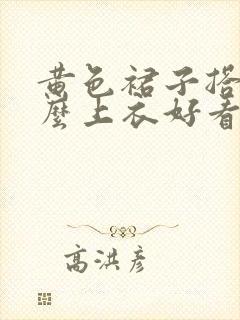 黄色裙子搭
麼上衣好看
高洪彦